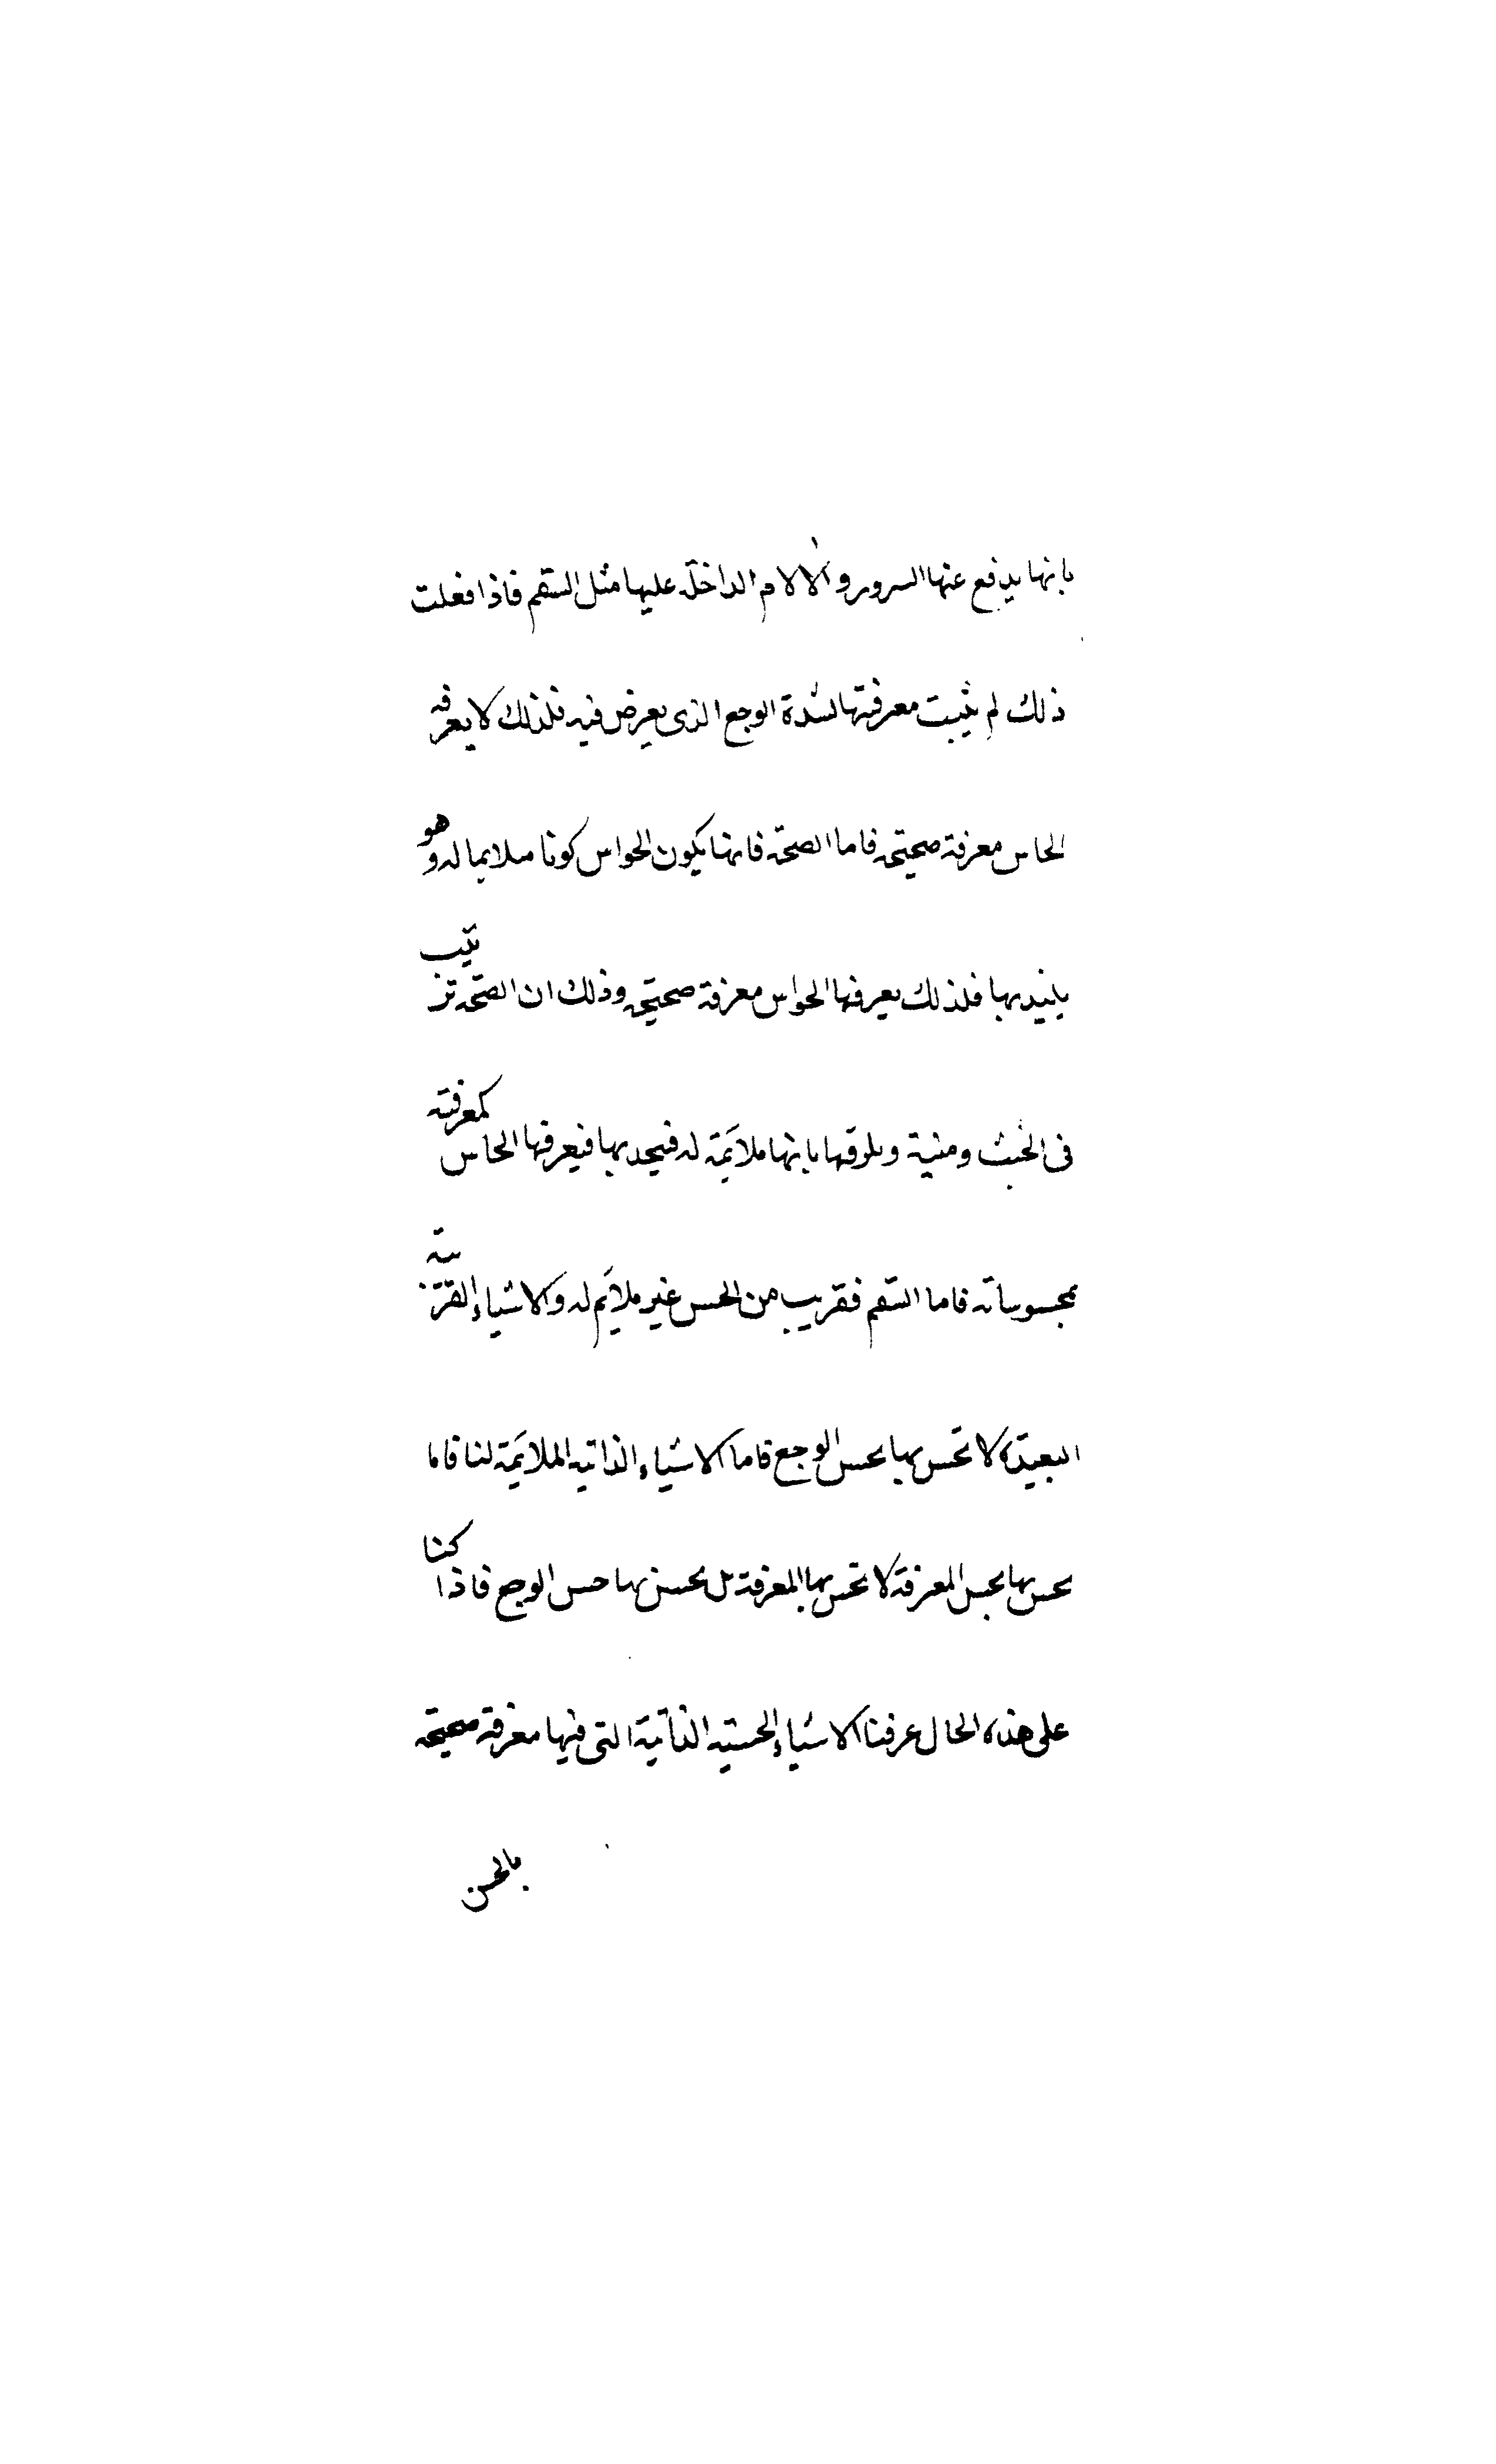 بانها يدفع عنها السرور والالام الداخلة عليها مثل السقم فاذا فعلت
ذلك لم يثبت معرفتها لشدة الوجع الذى يعرض فيه فلذلك لا يعرفه
الحاس معرفة صحيحة فاما الصحة فانها يكون الحواس كونا ملايما له وهو
يلتذ بها فلذلك يعرفها الحواس معرفة صحيحة وذلك ان الصحة ترتيب
فى ومنية بانها ملائمة له بها فيعرفها الحاس كمعرفته
بمحسوساته فاما السقم فقريب من الحس غير ملائم له والاشياء القريبة
البعيدة لا تحس بها بحس الوجع فاما الاشياء الذاتية الملائمة لنا فانا
نحس بها بحس المعرفة لا نحس بها بالمعرفة بل نحس بها حس الوجع فاذا كنا
على هذه الحال عرفنا الاشياء الحسية الذاتية التى فيها معرفة صحيحة
بالحس